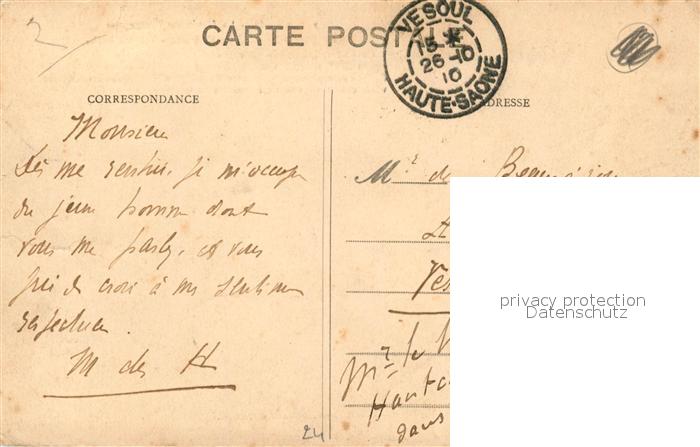 2
CARTE POSTALE
VESOUL
15
26-10
10
HAUTE-SAONE
CORRESPONDANCE
ADRESSE
Monsieur
Dès me rentrée, je m'occupe
du jeune homme dont
vous me parlez, et vous
prie de croire à mes sentiments
M des H
Mr de
Ves
Mr le
Haute
dans
privacy protection
Datenschutz
24